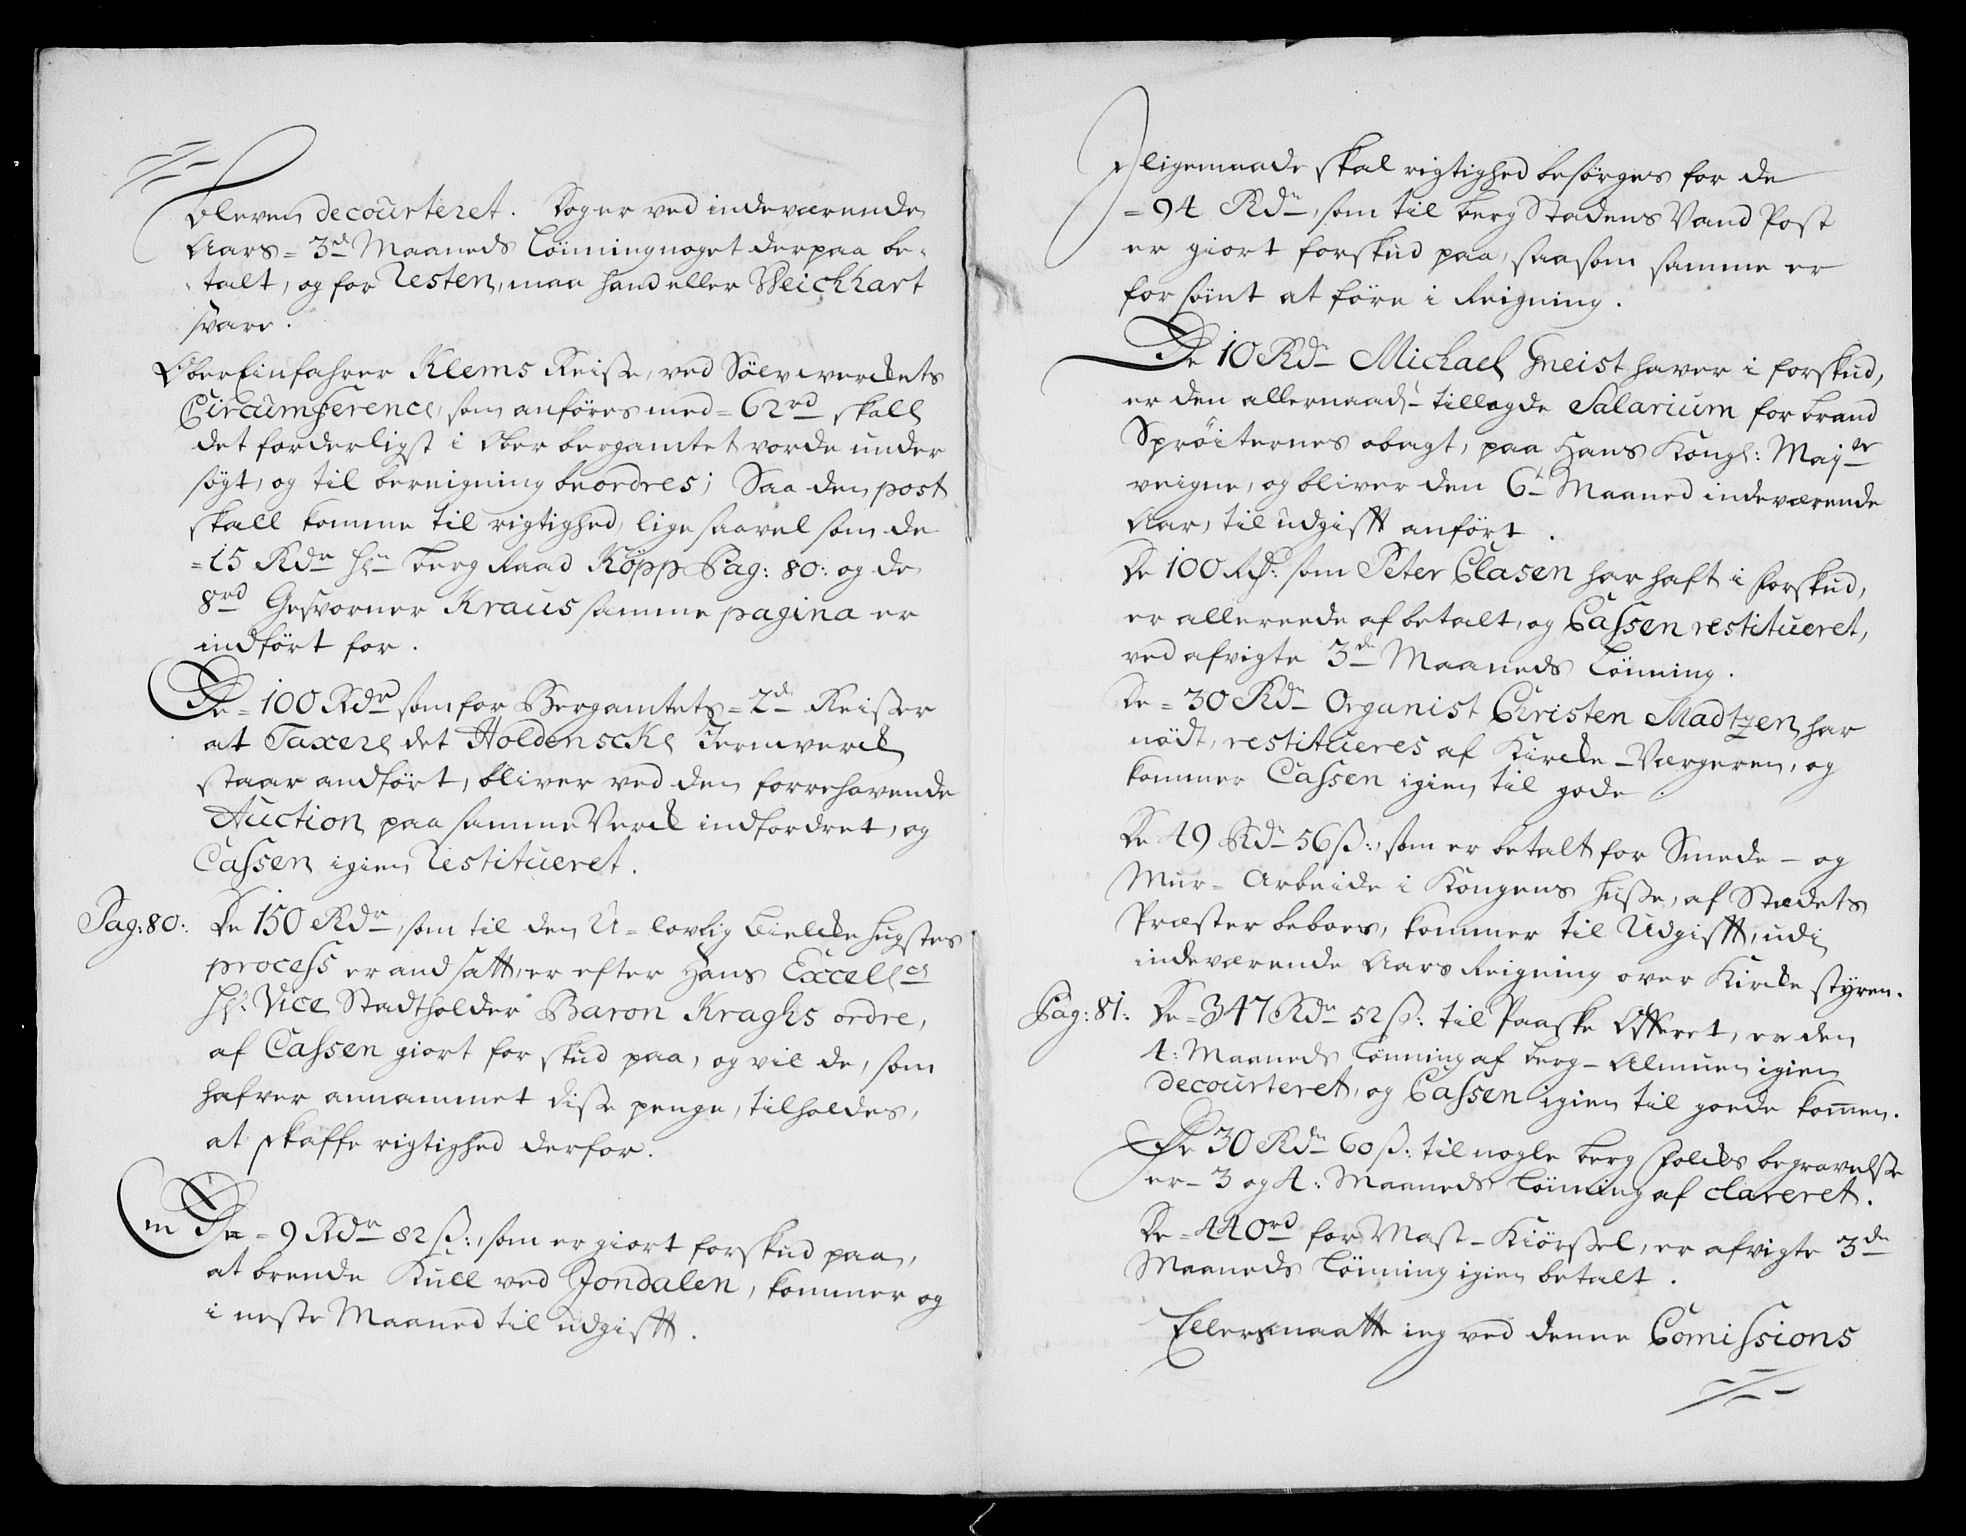 bleven decourteret. Dog er ved indeværende
Aars = 3d Maaneds Lönning noget derpaa be-
talt, og for Resten, maa hand eller Weichhart
svare.
OberEinfahrer Klems Reisse, ved Sölvwerckets
Circumference, som anföres med = 62 rd skall
det forderligst i Oberbergamtet vorde under
sögt, og til bereigning beordres; Saa den post
skall komme til rigtighed, lige saavel som de
= 15 Rdr Hr Berg Raad Köpp Pag: 80: og de
8 rd Gesvorner Kraus samme pagina er
indfört for.
De = 100 Rdr som for Bergamtets = 2de Reisser
at Taxere det Holdenscke Jernverck
staar andfört, bliver ved den forrehavende
Auction paa samme Verck indfordret, og
Cassen igien Restitueret.
Pag: 80: De 150 Rdr, som til den U-lovlig Fielde hugstes
process er andsatt, er efter Hans Excellces
Hr. Vice Stadtholder Baron Kraghs ordre,
af Cassen giort forskud paa, og vil de, som
hafver annammet disse penge, tilholdes,
at skaffe rigtighed derfor.
De = 9 Rdr 82 ß:, som er giort forskud paa,
at brende Kull ved Jondalen, kommer og
i neste Maaned til udgifft.
Iligemaade skal rigtighed besörges for de
= 94 Rdr, som til Berg Stadens Vand Post
er giort forskud paa, saasom samme er
forsömt at före i Reigning.
De 10 Rdr Michael Gneist haver i forskud,
er den allernaadt tillagde Salarium for brand
Spröiternes abagt, paa Hans Kongl: Maytr
veigne, og bliver den 6t Maaned indeværende
Aar, til udgifft anfört.
De 100 Rd: som Peter Clasen har haft i forskud,
er allereede afbetalt, og Cassen restitueret,
ved afvigte 3de Maaneds Lönning.
De = 30 Rdr Organist Christen Madtzen, har
nödt, restitueres af Kircke-Værgeren, og
kommer Cassen igien til gode.
De 49 Rdr 56 ß:, som er betalt for Smede- og
Mur-Arbeide i Kongens Husse, af Stedets
Præster beboes, kommer til Udgifft, udi
indeværende Aars Reigning over Kircke styren.
Pag: 81: De = 347 Rdr 52 ß: til Paaske Offeret, er den
4: Maaneds Lönning af Berg-Almuen igien
decourteret, og Cassen igien til goede kommen.
De 30 Rdr 60 ß: til nogle Berg Folckes begravelsse
er- 3 og 4: Maaneds Lönning af clareret.
De = 440 rd for Mast-Kiörssel, er afvigte 3de
Maaneds Lönning igien betalt.
Ellers maatte ieg ved denne Comissions